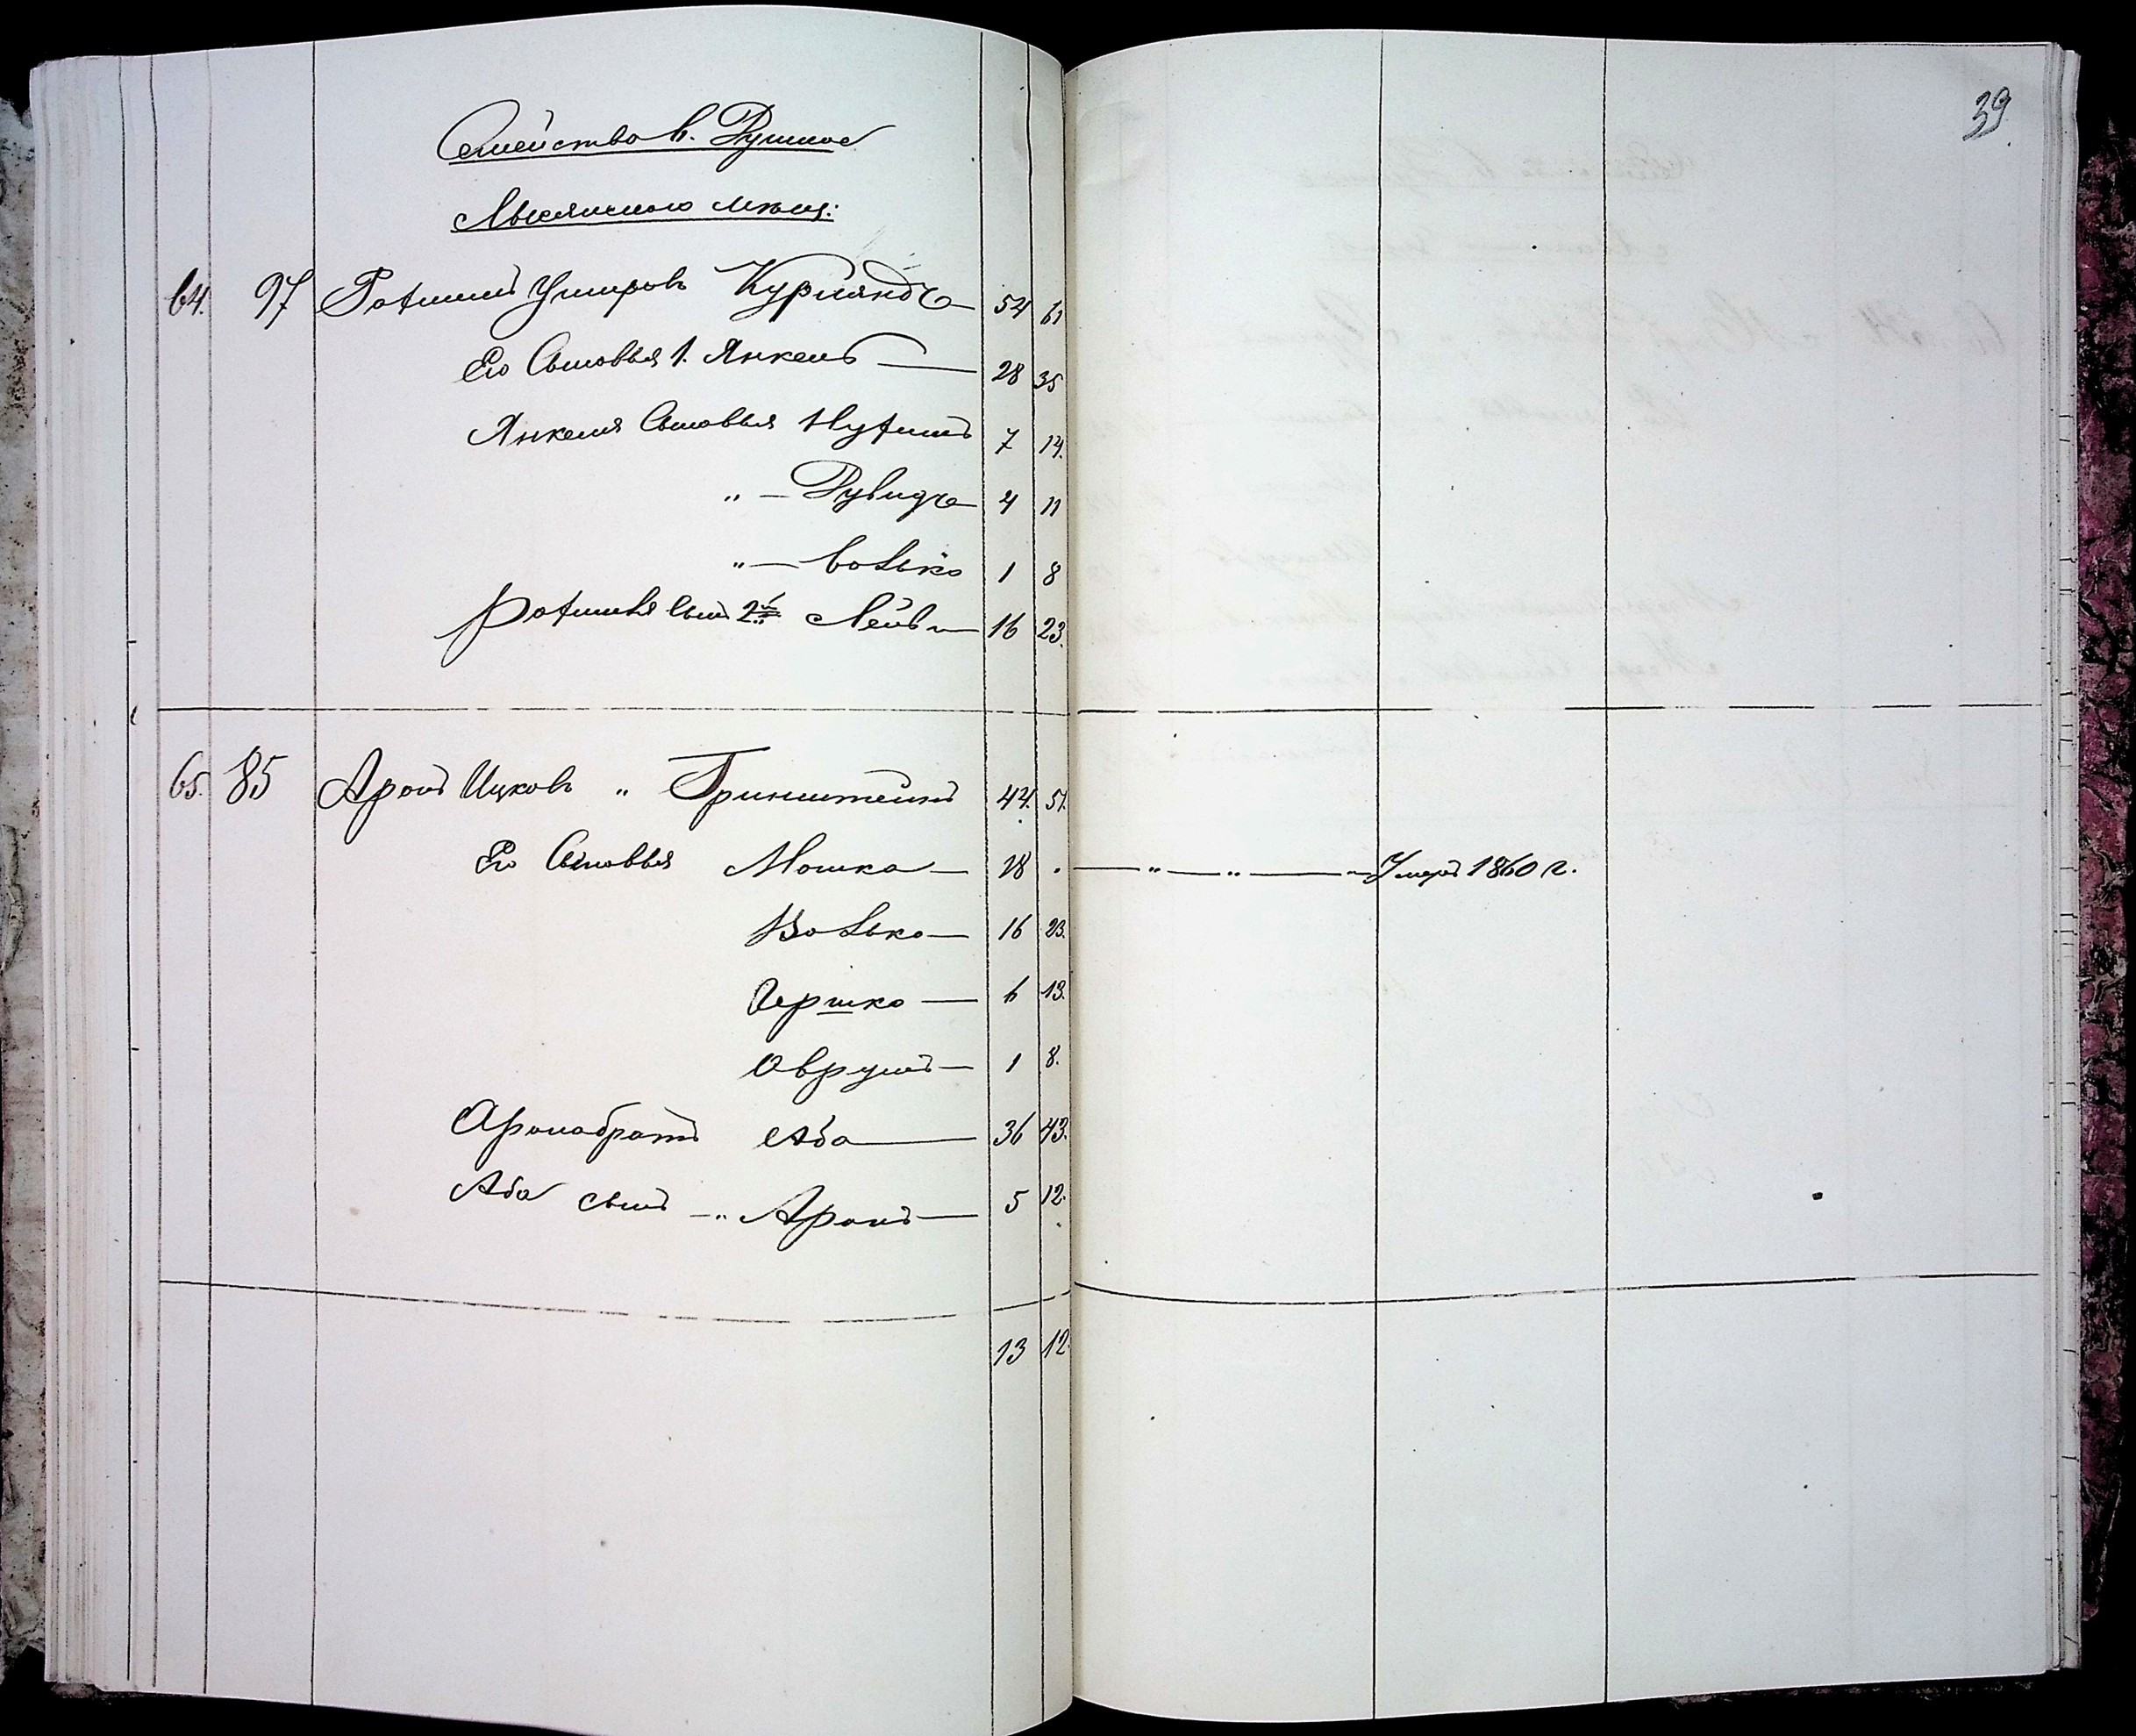 39
Семейство
64. 97 Курляндъ 54 61
Его Сыновья 1. Янкель 28 35
Янкеля Сыновья Нухимъ 7 14.
" — Рувидъ 4 11
" — Волько 1 8
Рахмиля сынъ 2й Лейба 16 23.
65. 85 Аронъ Ицковъ " Гринштейнъ 44. 51.
Его Сыновья Мошка — 28 . — " — " — " Умеръ 1860 г.
Волько — 16 23.
Гершко — 6 13.
Оврумъ — 1 8.
Арона братъ Аба — 36 43.
Аба сынъ — " Аронъ — 5 12.
13 12